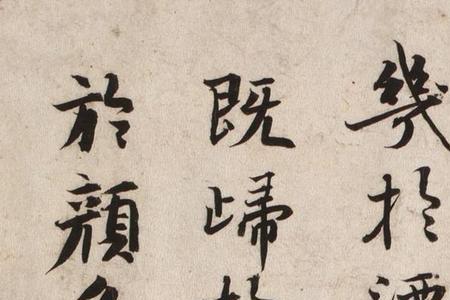 幾於
既歸
於顏